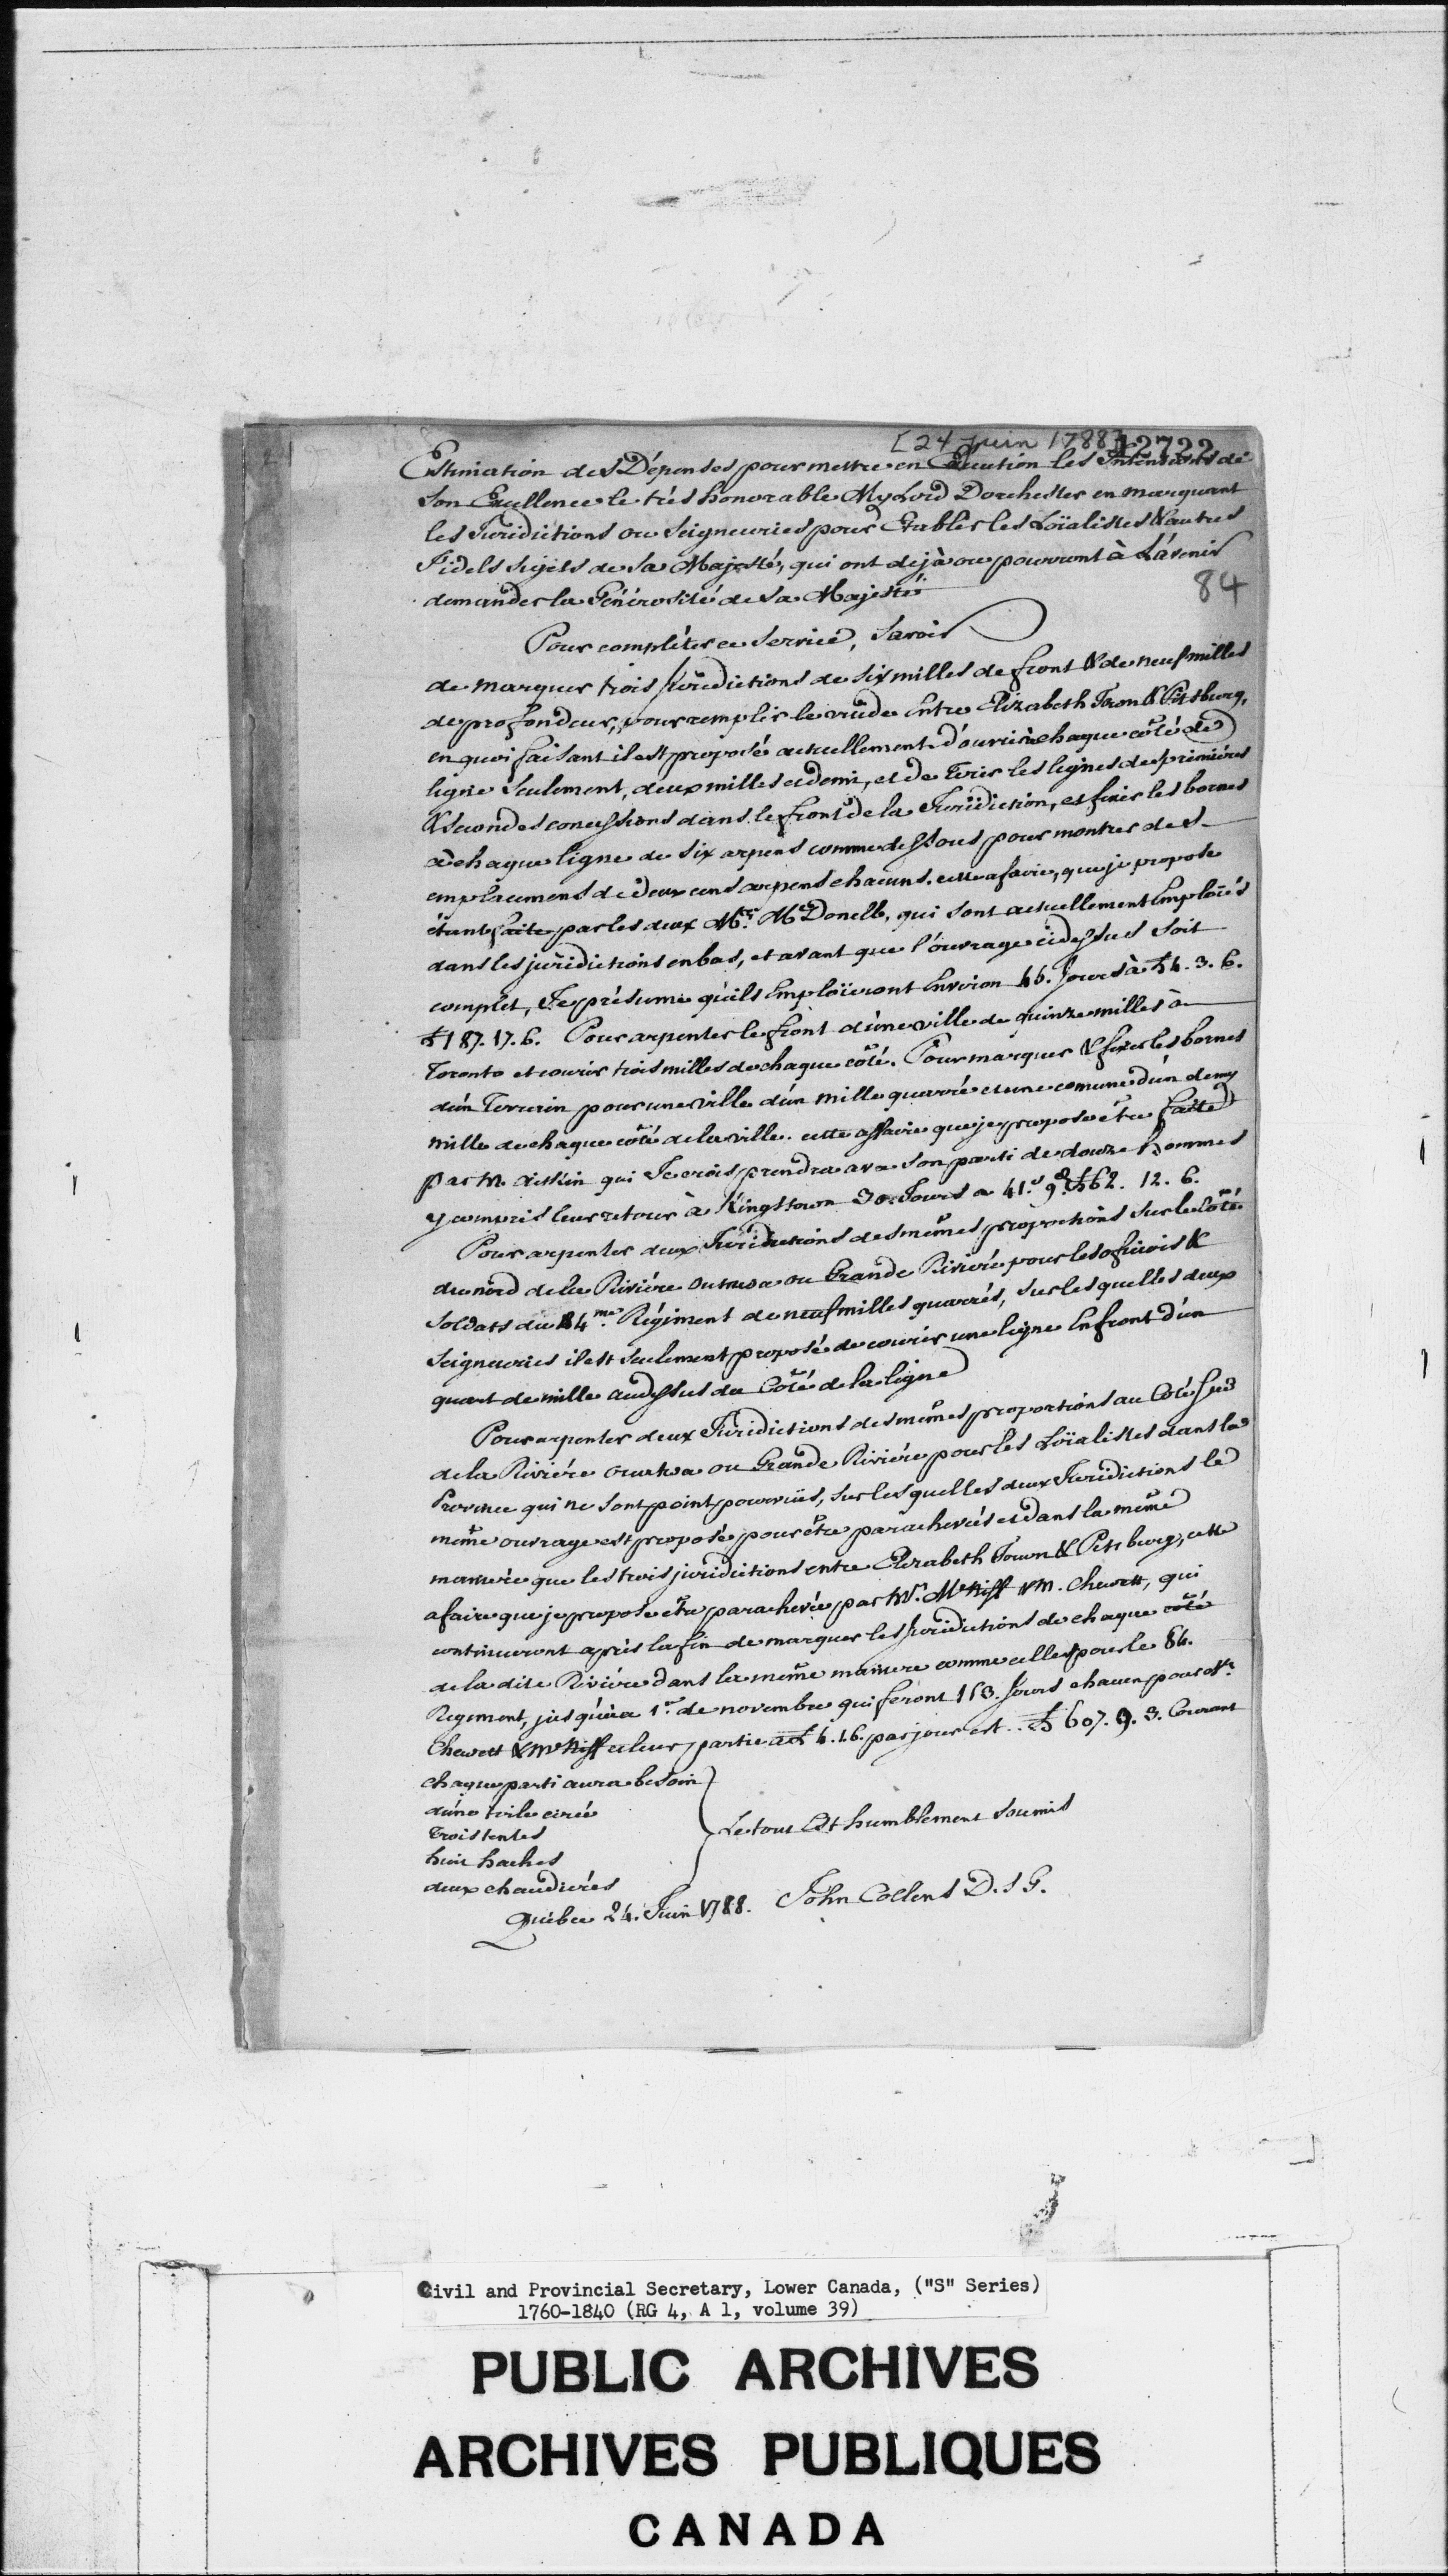 [24 Juin 1788] 12722
Estimation des Dépenses pour mettre en Execution les Intentions de
Son Excellence le trés honorable My Lord Dorchester en marquant
les Juridictions ou Seigneuries pour Etablir les Loïalistes & autres
Fidels Sujets de Sa Majesté, qui ont dejà ou pourront à L'avenir
84
demander la Générosité de Sa Majesté
Pour compléter ce Service, Savoir
de marquer trois Juridictions de Six milles de front & de neuf milles
de profondeur, pour remplir le vuide Entre Elizabeth Town & Pitsburg,
en quoi faisant il est proposé actuellement d'ouvrir à chaque côté de
ligne Seulement, deux milles et demi, et de Tirer les lignes des premiéres
& secondes concessions dans le front de la Juridiction, et fixer les bornes
à chaque ligne de Six arpens comme dessous pour montrer des
emplacemens de deux cens arpens chacuns. cette afaire, que je propose
étant faite par les deux Mrs. McDonell, qui sont actuellement Emploïés
dans les juridictions en bas, et avant que l'ouvrage cidessus Soit
complet, Je présume qu'ils Emploïeront Environ 45. Jours à £4. 3. 6.
£187. 17. 6. Pour arpenter le front d'une ville de quinze milles à
Toronto et courir trois milles de chaque côté. Pour marquer & fixer les bornes
d'un Terrain pour une ville d'un mille quarré et une comune d'un demy
mille de chaque côté de la ville. cette affaire que je propose être faite
par M. Aitkin qui Je crois prendra avec son parti de douze hommes
y compris leur retour à Kingstown 30. Jours a 41.s 9.d £62. 12. 6.
Pour arpenter deux Juridictions des mêmes proportions sur le Côté
du nord de la Riviére Outawa ou Grande Riviére pour les oficiers &
Soldats du 84.me Régiment de neuf milles quarrés, sur les quelles deux
Seigneuries il est seulement proposé de courir une ligne En front d'un
quart de mille audessus du Côté de la ligne
Pour arpenter deux Juridictions des mêmes proportions au Coté Sud
de la Riviére Outawa ou Grande Riviére pour les Loïalistes dans la
Province qui ne sont point pourvuës, sur les quelles deux Juridictions le
même ouvrage est proposé pour être parachevés et dans la même
maniére que les trois juridictions entre Elizabeth Town & Pitsburg, cette
afaire que je propose être parachevée par Mr. McNiff & M. Chewett, qui
continueront aprés la fin de marquer les Juridictions de chaque côté
de la dite Riviére dans la même maniere comme celles pour le 84.
Regiment, jusqu'au 1.er de novembre qui feront 153. Jours chacun pour Mr.
Chewett & McNiff et leur partie à £4. 1.6. par jour est .. £607. 9. 3. Courant
chaque parti aura besoin
d'une toile cirée
Trois tentes
huit haches
deux chaudiéres
Le tout Est humblement Soumis
Québec 24. Juin 1788. John Collens D. S G.
Civil and Provincial Secretary, Lower Canada, ("S" Series)
1760-1840 (RG 4, A 1, volume 39)
PUBLIC ARCHIVES
ARCHIVES PUBLIQUES
CANADA